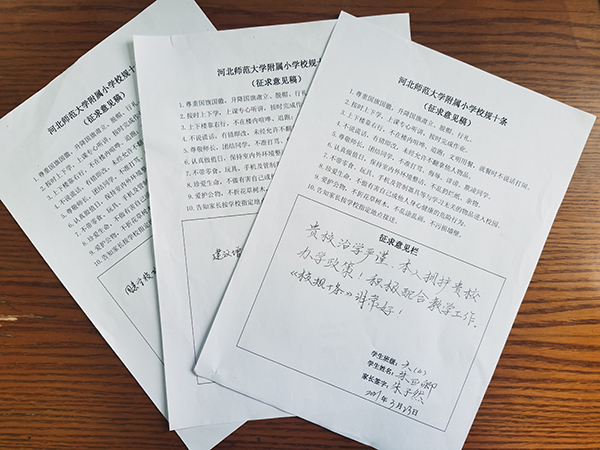 河北师范大学附属小学校规十
(征求意见稿)
1. 尊重国旗国徽,升降国旗肃立、
2. 按时上下学,上课专心听讲,
3. 上下楼靠右行,不在楼内喧哗、
4. 不说谎话,有错即改,未经允
5. 尊敬师长,团结同学,不
6. 认真做值日,保持室内外
7. 不带零食、玩具、手机
8. 珍爱生命,不做有害
9. 爱护公物,不折花
10. 告知家长按学校指
河北师范大学附属小学校规十
(征求意见稿)
1. 尊重国旗国徽,升降国旗肃立、脱帽、行礼。
2. 按时上下学,上课专心听讲,按时完成作
3. 上下楼靠右行,不在楼内喧哗、追跑;
4. 不说谎话,有错即改,未经允许不翻
5. 尊敬师长,团结同学,不
6. 认真做值日,保持室内外环境整
7. 不带零食、玩具、手机及管制
8. 珍爱生命,不做有害自己或
9. 爱护公物,不折花草树木,
10. 告知家长按学校指定地
建议增
河北师范大学附属小学校规十条
(征求意见稿)
1. 尊重国旗国徽,升降国旗肃立、脱帽、行礼。
2. 按时上下学,上课专心听讲,按时完成作业。
3. 上下楼靠右行,不在楼内喧哗、追跑;文明用餐,就餐时不说话打闹。
4. 不说谎话,有错即改,未经允许不翻拿他人物品。
5. 尊敬师长,团结同学,不打骂、侮辱、诽谤、欺凌同学。
6. 认真做值日,保持室内外环境整洁,不乱扔纸屑、杂物。
7. 不带零食、玩具、手机及管制器具等与学习无关的物品进入校园。
8. 珍爱生命,不做有害自己或他人身心健康的危险行为。
9. 爱护公物,不折花草树木,不乱涂乱画,不污损墙壁。
10. 告知家长按学校指定地点接送。
征求意见栏
贵校治学严谨,本人拥护贵校
办学政策!积极配合教学工作。
《校规十条》非常好!
学生班级:
学生姓名:
家长签字:朱子然
2021年3月23日